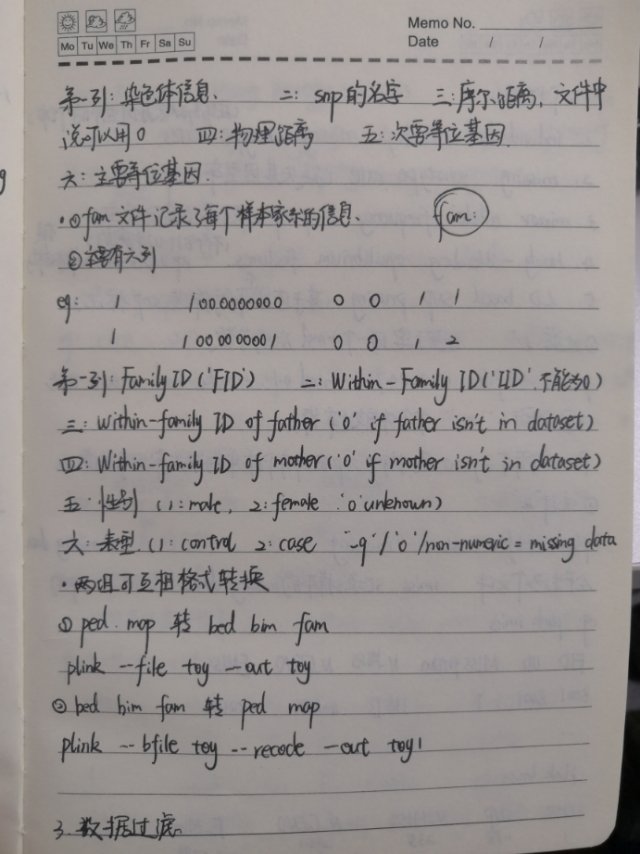 Memo No.
Mo Tu We Th Fr Sa Su
Date / /
第一列：染色体信息、 二：snp的名字 三：摩尔距离，文件中
说可以用0 四：物理距离 五：次要等位基因
六：主要等位基因.
·①fam文件记录了每个样本家系的信息、 fam:
②主要有六列
eg: 1 1000000000 0 0 1 1
1 1000000001 0 0 1 2
第一列：Family ID ('FID') 二：Within-Family ID ('IID' 不能为0)
三：Within-family ID of father ('0' if father isn't in dataset)
四：Within-family ID of mother ('0' if mother isn't in dataset)
五：性别 (1:male, 2:female '0'unknown)
六：表型 (1:control 2:case '-9'/'0'/non-numeric = missing data
·两组可互相格式转换
① ped.map 转 bed bim fam
plink --file toy --out toy
② bed bim fam 转 ped map
plink --bfile toy --recode --out toy1
3.数据过滤